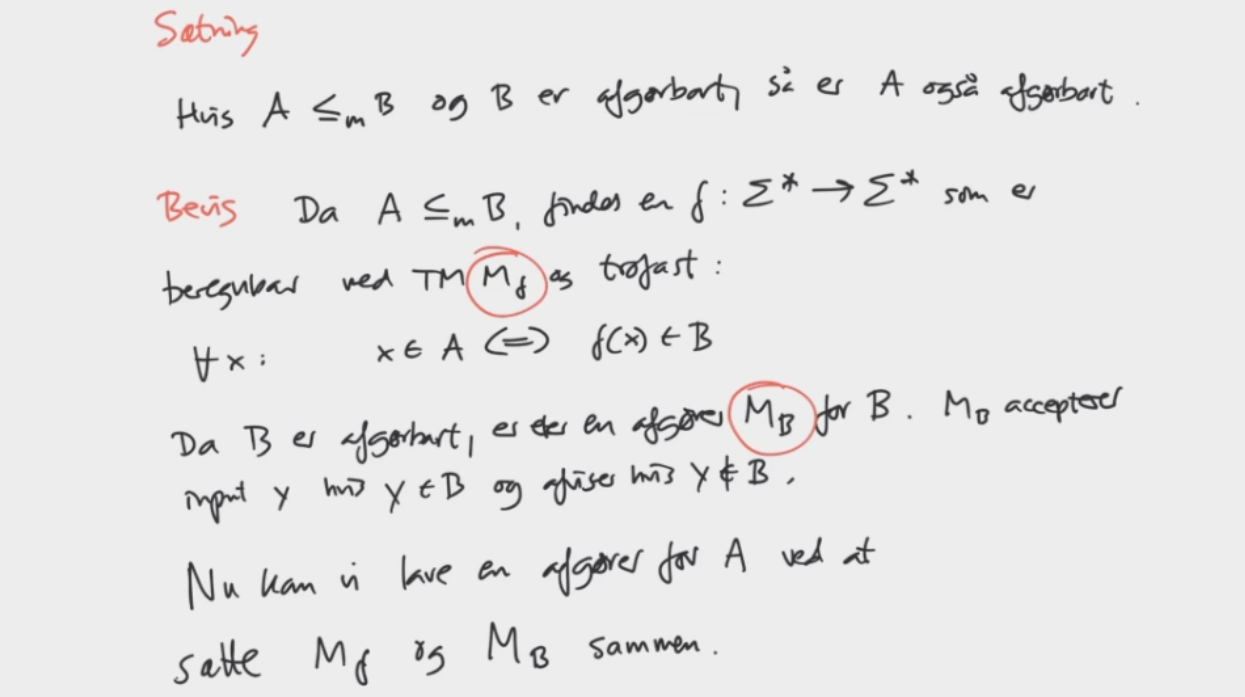 Sætning
Hvis A ≤ₘ B og B er afgørbart, så er A også afgørbart.
Bevis Da A ≤ₘ B, findes en f : Σ* → Σ* som er
beregnbar ved TM M_f og trofast :
∀x : x ∈ A ⟺ f(x) ∈ B
Da B er afgørbart, er der en afgører M_B for B. M_B accepterer
input y hvis y ∈ B og afviser hvis y ∉ B.
Nu kan vi lave en afgører for A ved at
sætte M_f og M_B sammen.